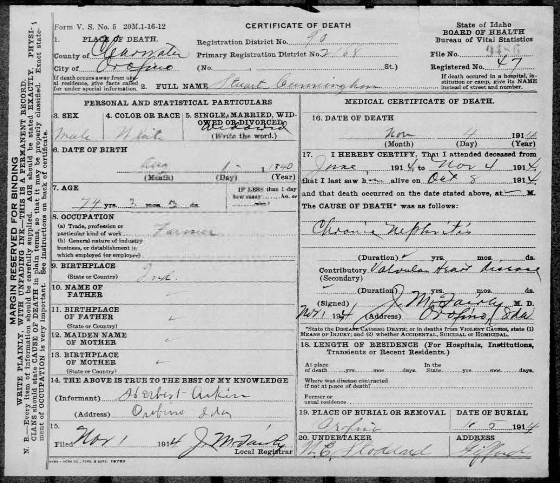 Form V. S. No. 5 20M.1-16-12
CERTIFICATE OF DEATH
State of Idaho
BOARD OF HEALTH
Bureau of Vital Statistics
1. PLACE OF DEATH.
County of Clearwater
City of Orofino
Registration District No. 90
Primary Registration District No. 2168
(No. St.)
File No.
Registered No. 47
If death occurs away from usual residence, give facts called for under special information.
2. FULL NAME Stuart Cunningham
If death occurred in a hospital, institution or camp, give its NAME instead of street and number.
PERSONAL AND STATISTICAL PARTICULARS
3. SEX
Male
4. COLOR OR RACE
White
5. SINGLE, MARRIED, WIDOWED OR DIVORCED
Widowed
(Write the word.)
6. DATE OF BIRTH
1840
(Month) (Day) (Year)
7. AGE
74 yrs. 3 mos. 3 ds.
IF LESS than 1 day how many hrs. or min.?
8. OCCUPATION
(a) Trade, profession or particular kind of work
Farmer
(b) General nature of industry, business, or establishment in which employed (or employer)
9. BIRTHPLACE
(State or Country)
Ind.
10. NAME OF FATHER
11. BIRTHPLACE OF FATHER
(State or Country)
12. MAIDEN NAME OF MOTHER
13. BIRTHPLACE OF MOTHER
(State or Country)
14. THE ABOVE IS TRUE TO THE BEST OF MY KNOWLEDGE
(Informant)
(Address) Orofino Ida
15.
Filed Nov 1 1914 J. M. Fairly
Local Registrar
MEDICAL CERTIFICATE OF DEATH
16. DATE OF DEATH
Nov 4 1914
(Month) (Day) (Year)
17. I HEREBY CERTIFY, That I attended deceased from
June 1914, to Nov 4 1914
that I last saw him alive on Oct 8 1914
and that death occurred on the date stated above, at M.
The CAUSE OF DEATH* was as follows:
Chronic Nephritis
(Duration) yrs. mos. ds.
Contributory Valvular heart disease
(Secondary)
(Duration) yrs. mos. ds.
(Signed) J. M. Fairly M. D.
Nov 1 1914 (Address) Orofino, Ida
*State the DISEASE CAUSING DEATH; or in deaths from VIOLENT CAUSES, state (1) MEANS OF INJURY; and (2) whether ACCIDENTAL, SUICIDAL or HOMICIDAL.
18. LENGTH OF RESIDENCE (For Hospitals, Institutions, Transients or Recent Residents.)
At place of death yrs. mos. ds. State yrs. mos. ds.
Where was disease contracted if not at place of death?
Former or usual residence
19. PLACE OF BURIAL OR REMOVAL
Orofino
DATE OF BURIAL
1914
20. UNDERTAKER
ADDRESS
Gifford
MARGIN RESERVED FOR BINDING
WRITE PLAINLY, WITH UNFADING INK—THIS IS A PERMANENT RECORD.
N. B.—Every item of information should be carefully supplied. AGE should be stated EXACTLY. PHYSICIANS should state CAUSE OF DEATH in plain terms, so that it may be properly classified. Exact statement of OCCUPATION is very important. See instructions on back of certificate.